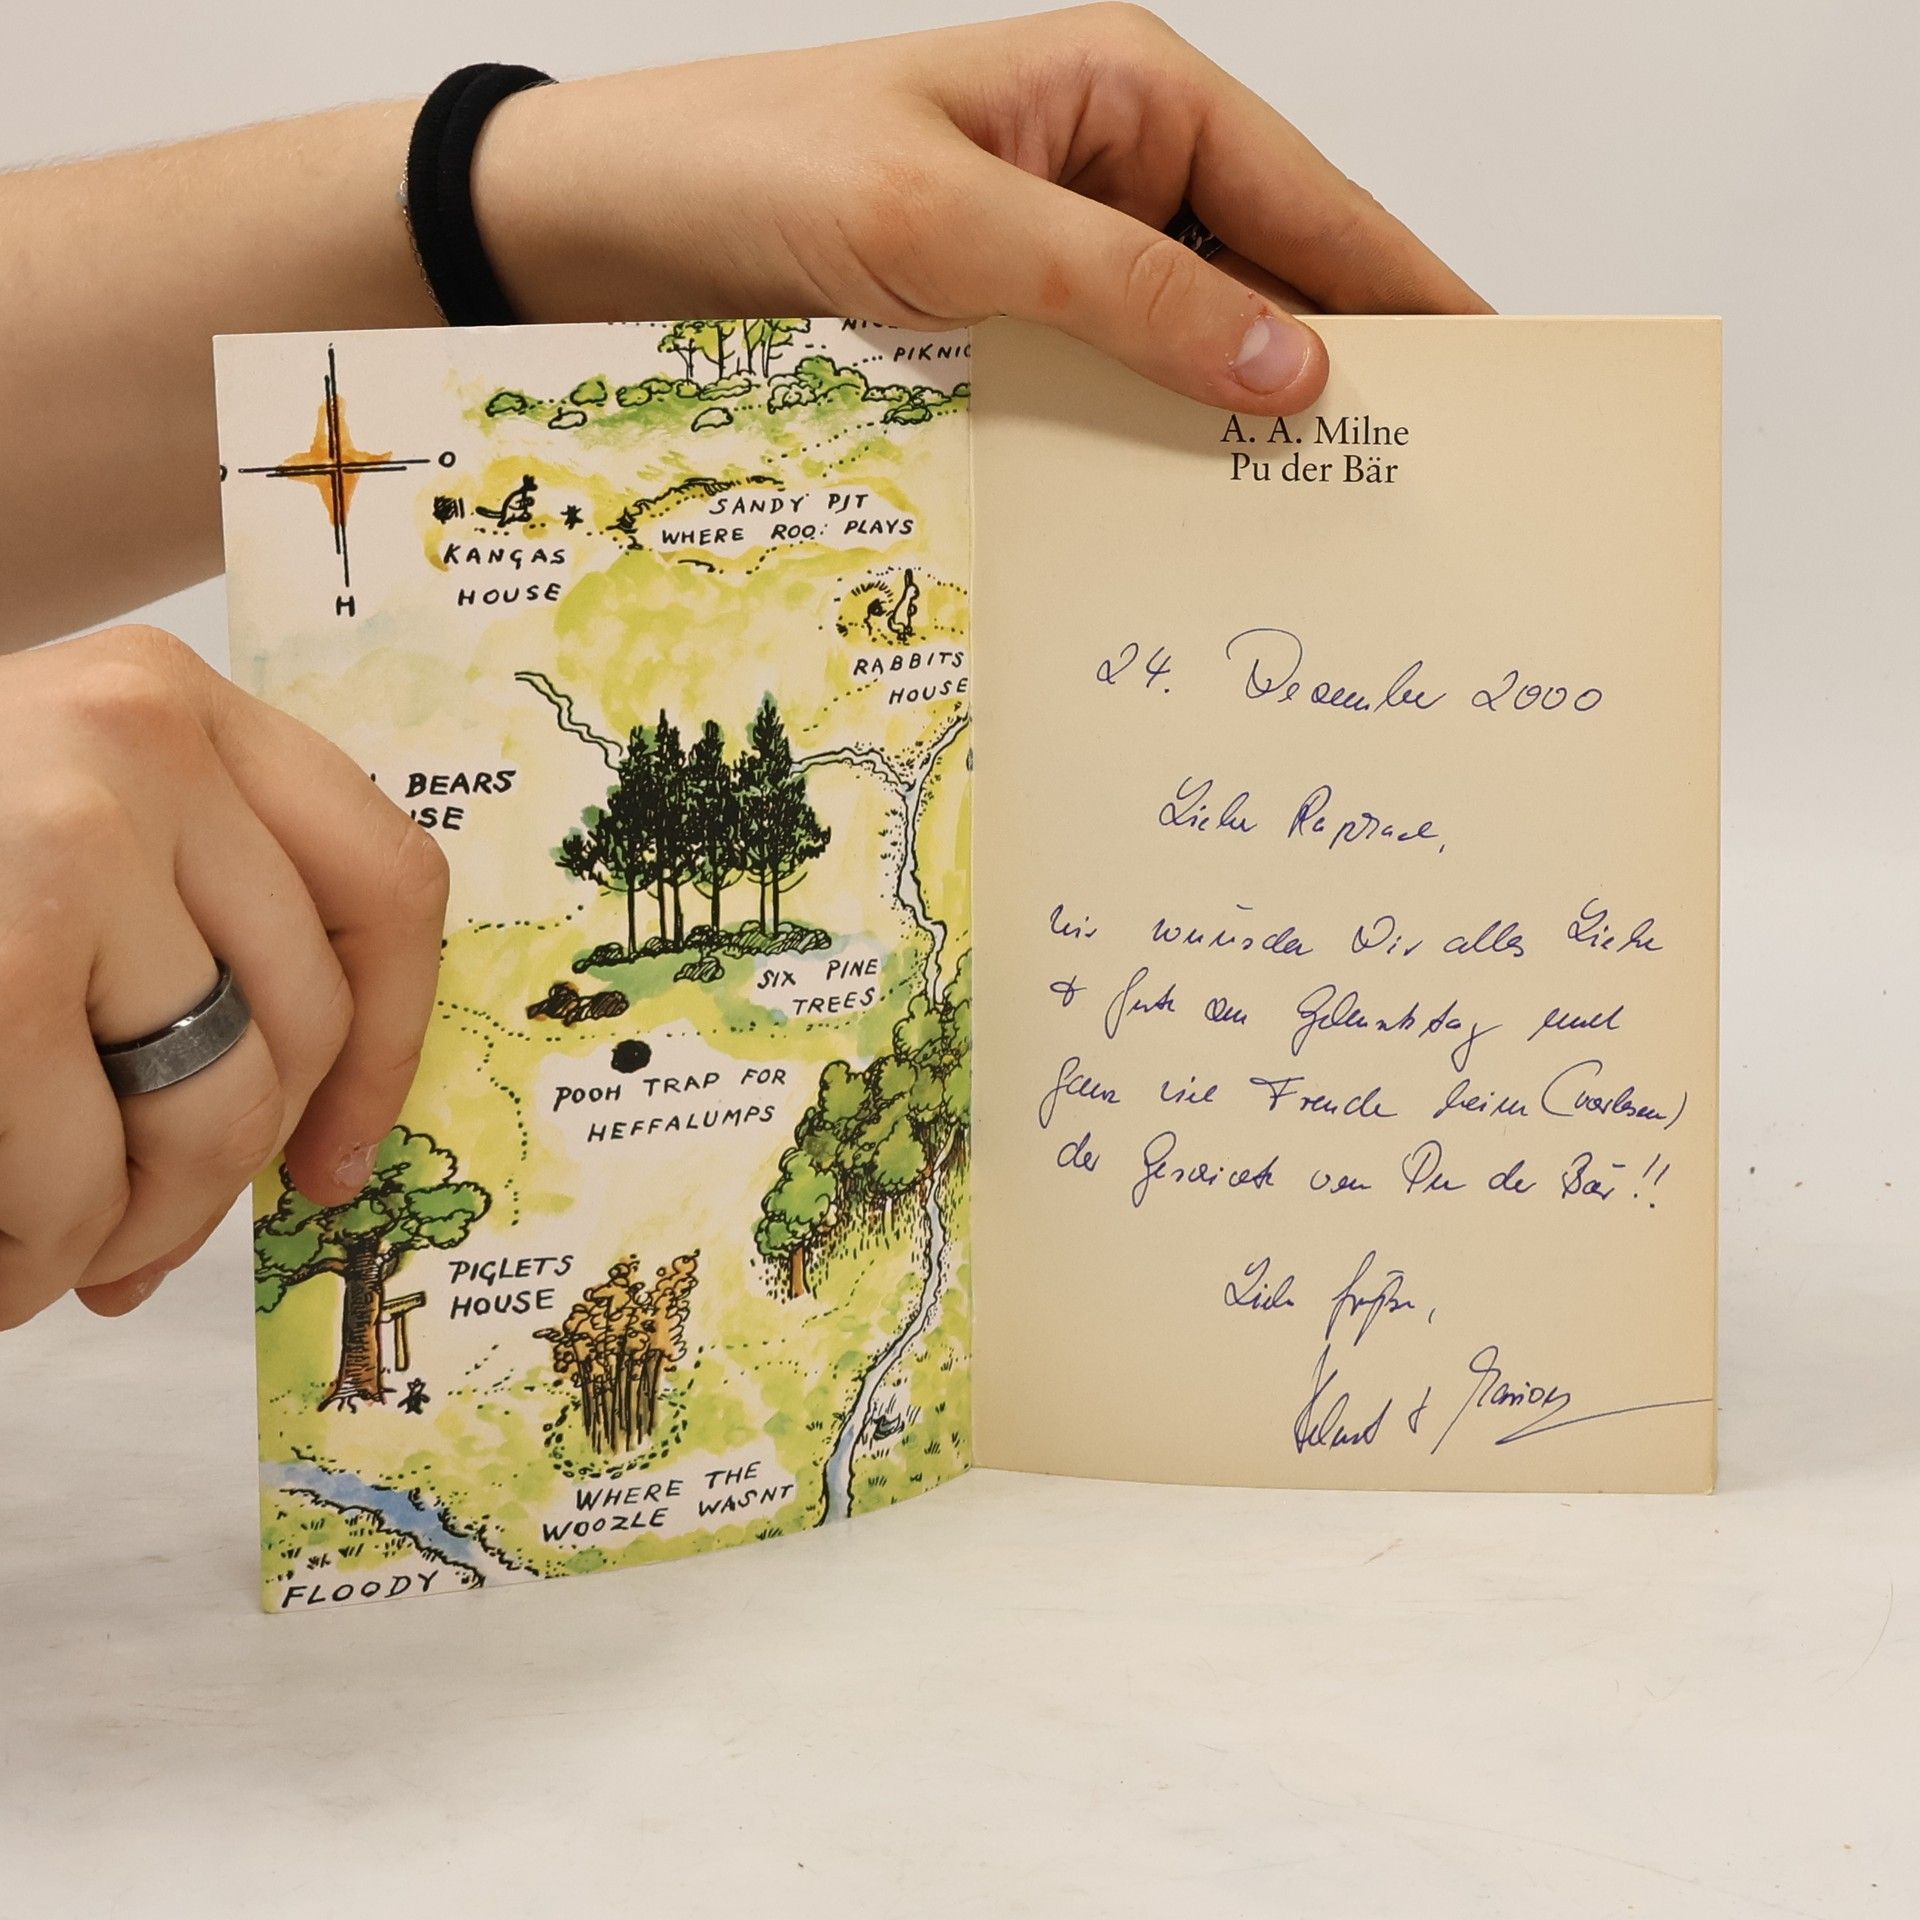 PIKNIC
O
KANGAS
HOUSE
H
SANDY PIT
WHERE ROO PLAYS
RABBITS
HOUSE
BEARS
SIX PINE
TREES
POOH TRAP FOR
HEFFALUMPS
PIGLETS
HOUSE
WHERE THE
WOOZLE WASNT
FLOODY
A. A. Milne
Pu der Bär
24. Dezember 2000
Lieber Raphael,
wir wünschen Dir alles Liebe
+ Gute zum Geburtstag und
ganz viel Freude beim (vorlesen)
der Geschichte von Pu der Bär!!
Liebe Grüße,
Helmut + Marion